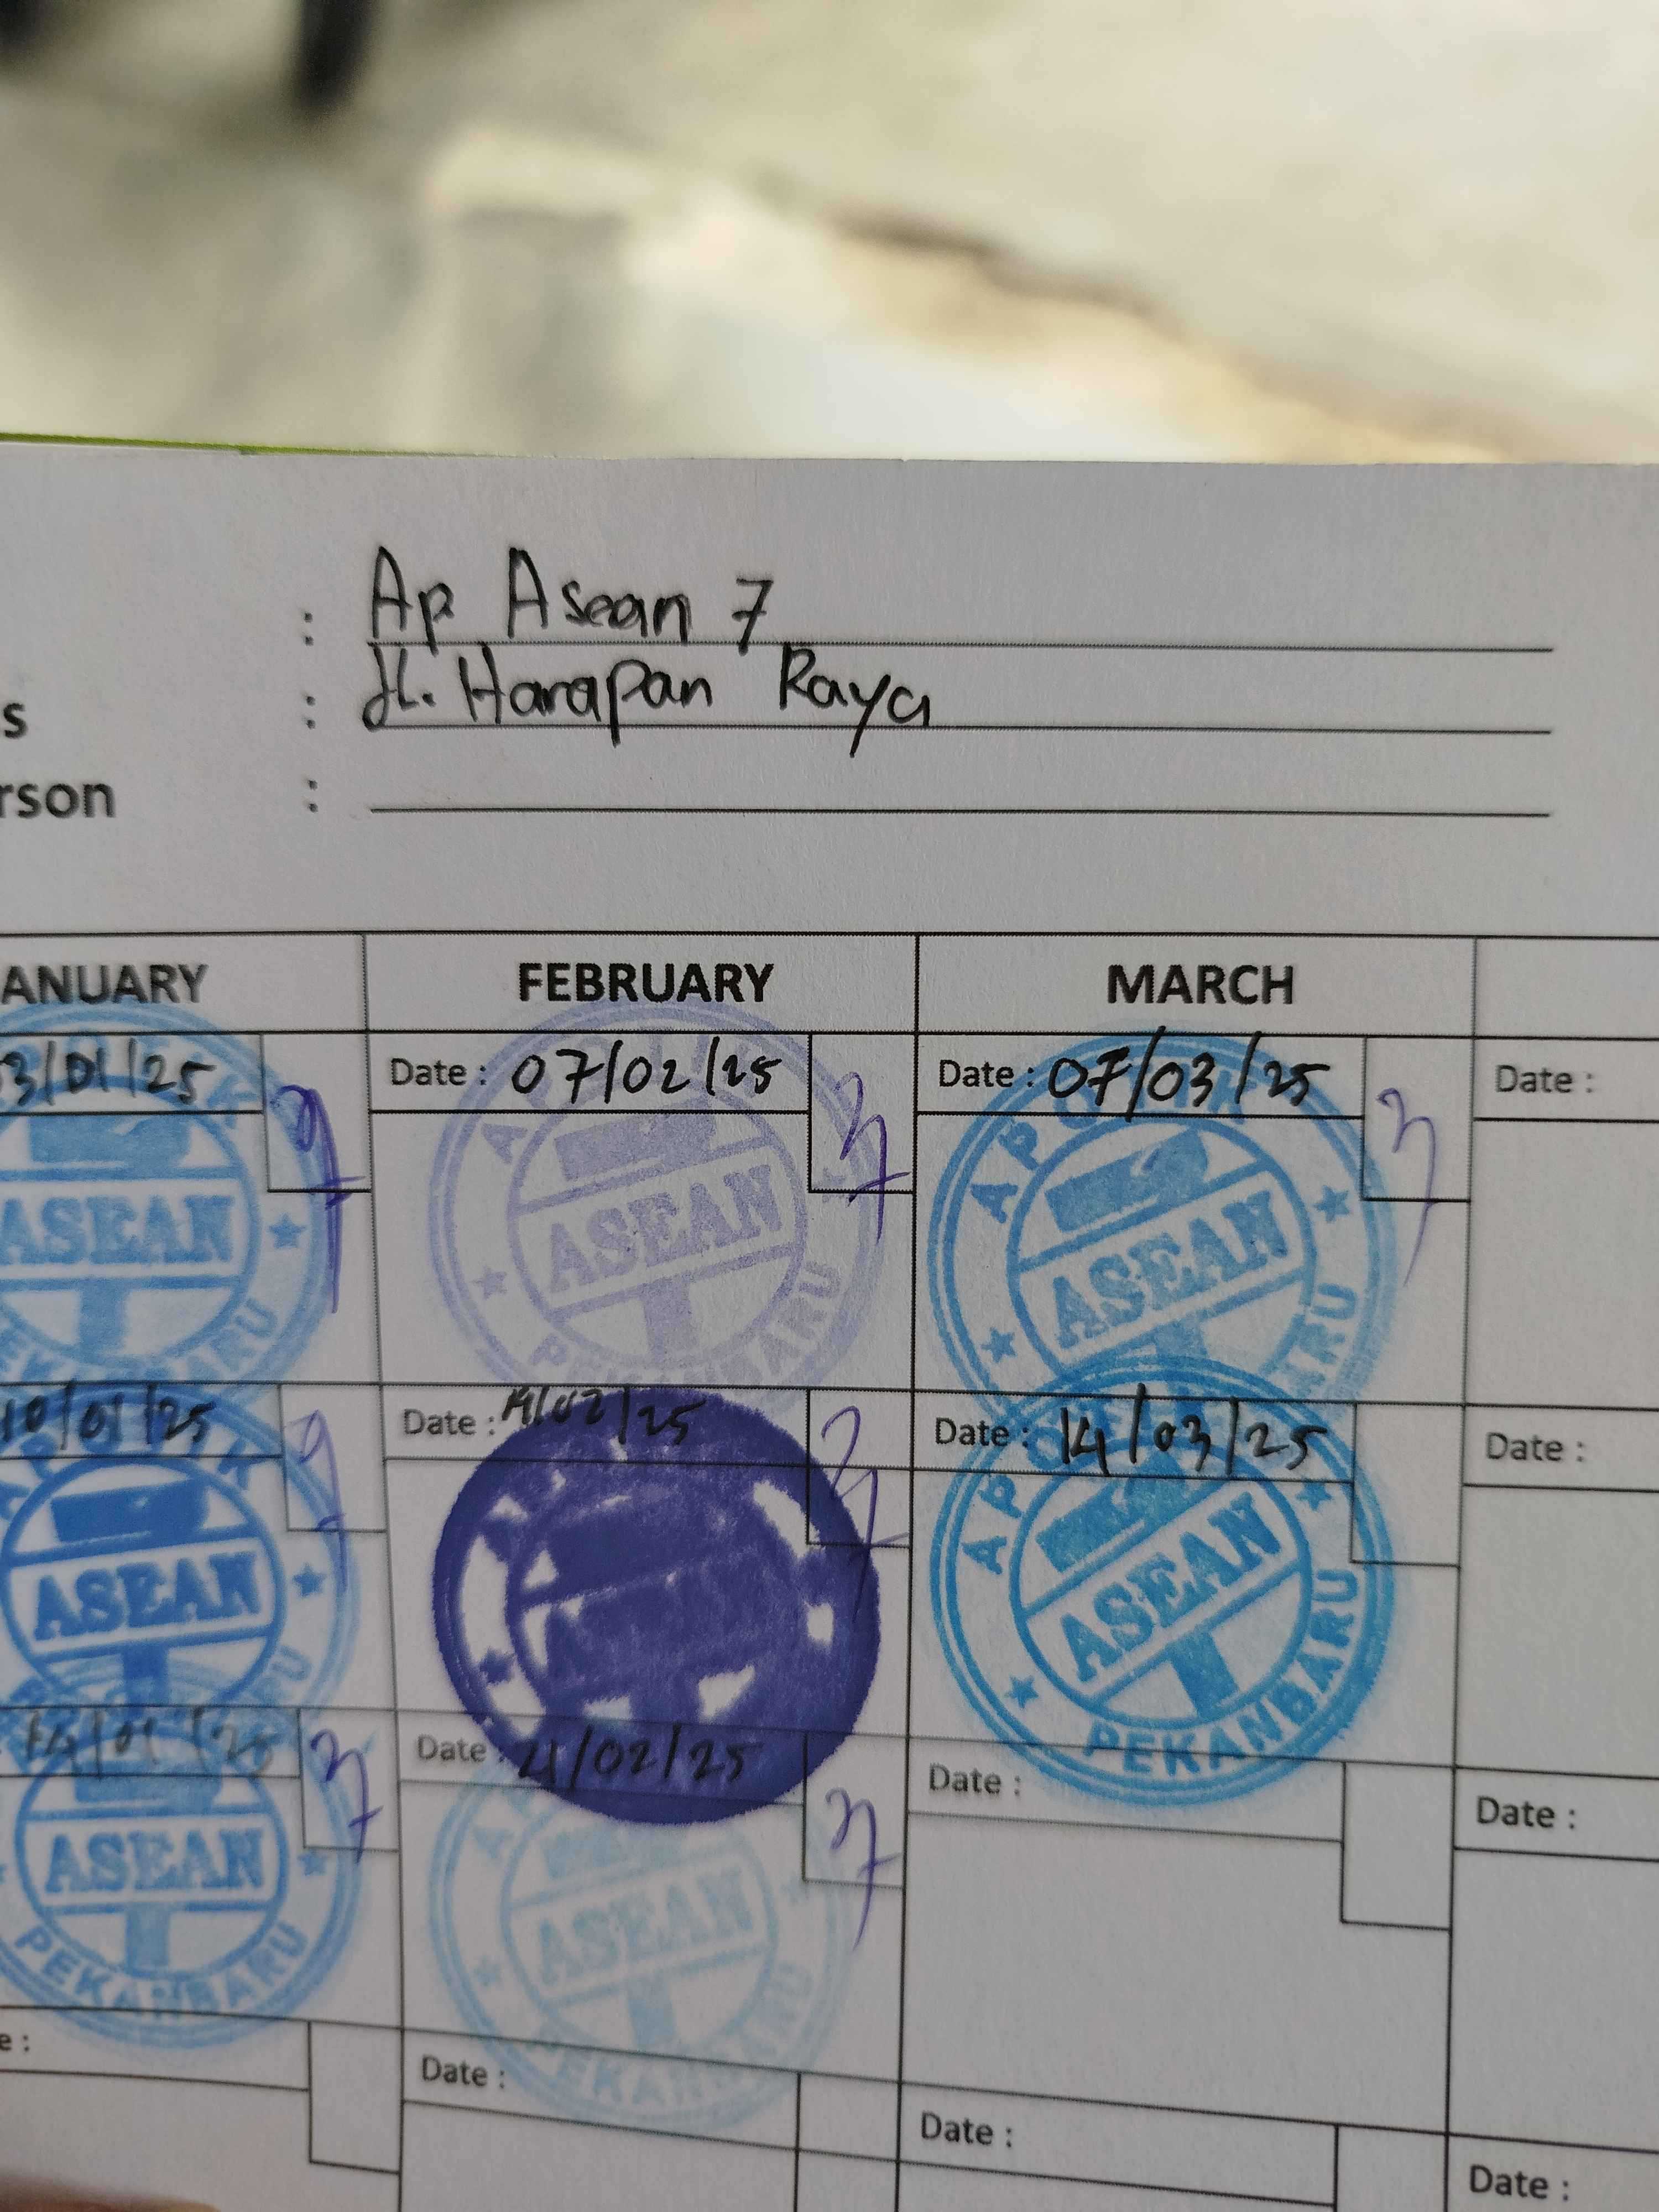 : Ap Asean 7
s : Jl. Harapan Raya
rson :
ANUARY FEBRUARY MARCH
3/01/25 Date : 07/02/25 Date : 07/03/25 Date :
APOTIK ASEAN PEKANBARU
APOTIK ASEAN PEKANBARU
APOTIK ASEAN PEKANBARU
10/01/25 Date : 14/02/25 Date : 14/03/25 Date :
APOTIK ASEAN PEKANBARU
APOTIK ASEAN PEKANBARU
/01/25 Date : 21/02/25 Date : Date :
ASEAN PEKANBARU
ASEAN PEKANBARU
e : Date : Date : Date :